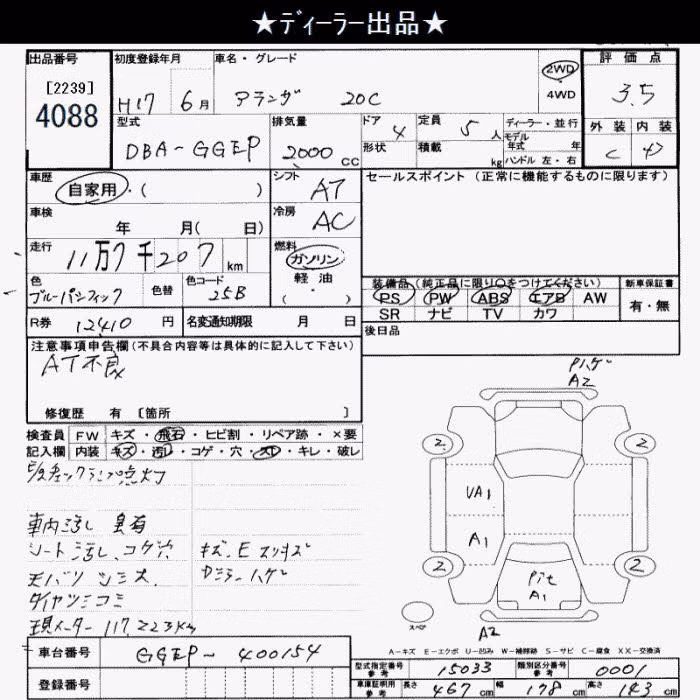 ★ディーラー出品★
出品番号
[2239]
4088
初度登録年月
H17 6月
車名・グレード
アランザ 20C
2WD
4WD
評価点
3.5
外装 内装
C 4
型式
DBA-GGEP
排気量
2000 cc
ドア 4
形状
定員 5 人
積載 kg
ディーラー・並行
モデル年式 年
ハンドル 左・右
車歴
自家用・( )
シフト AT
車検
年 月( 日)
冷房 AC
走行
11万7千207 km
燃料
ガソリン
軽油
( ・ )
色
ブルーパシフィック
色替
色コード
25B
R券 12410 円
名変通知期限 月 日
セールスポイント (正常に機能するものに限ります)
装備品(純正品に限り〇をつけてください)
PS PW ABS エアB AW
SR ナビ TV カワ
新車保証書
有・無
後日品
注意事項申告欄(不具合内容等は具体的に記入して下さい)
AT不良
修復歴 有 [箇所 ]
検査員記入欄
FW キズ・飛石・ヒビ割・リペア跡・×要
内装 キズ・汚レ・コゲ・穴・スレ・キレ・破レ
チェックランプ点灯
車内汚し 臭有
シート汚し、コゲ穴
モバリ シミ大
ダイヤツミコミ
現メーター 117,223km
キズ、E スリキズ
Dミラーハゲ
Pハゲ
A2
2 2
UA1
A1
2 2
Pit
A1
A2
スペア
A-キズ E-エクボ U-凹み W-補修跡 S-サビ C-腐食 XX-交換済
車台番号 GGEP-400154
登録番号
型式指定番号 参考 15033
類別区分番号 参考 0001
車庫証明用 参考 長さ 467 cm 幅 178 cm 高さ 143 cm